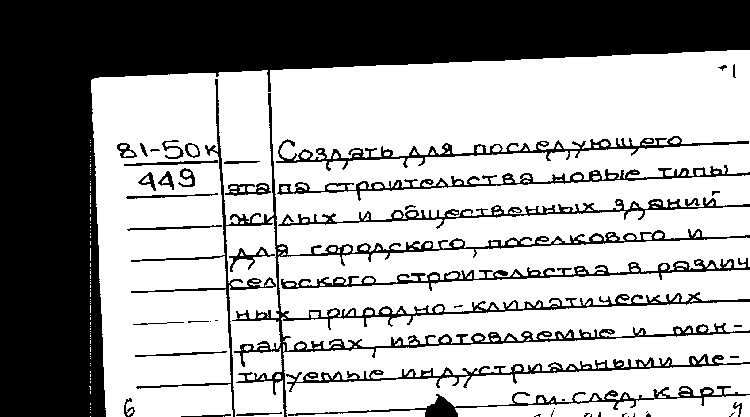 81-50к Создать для последующего
449 этапа строительства новые типы
жилых и общественных зданий
для городского, поселкового и
сельского строительства в различ
ных природно-климатических
районах, изготовляемые и мон-
тируемые индустриальными ме-
См. след. карт.
6